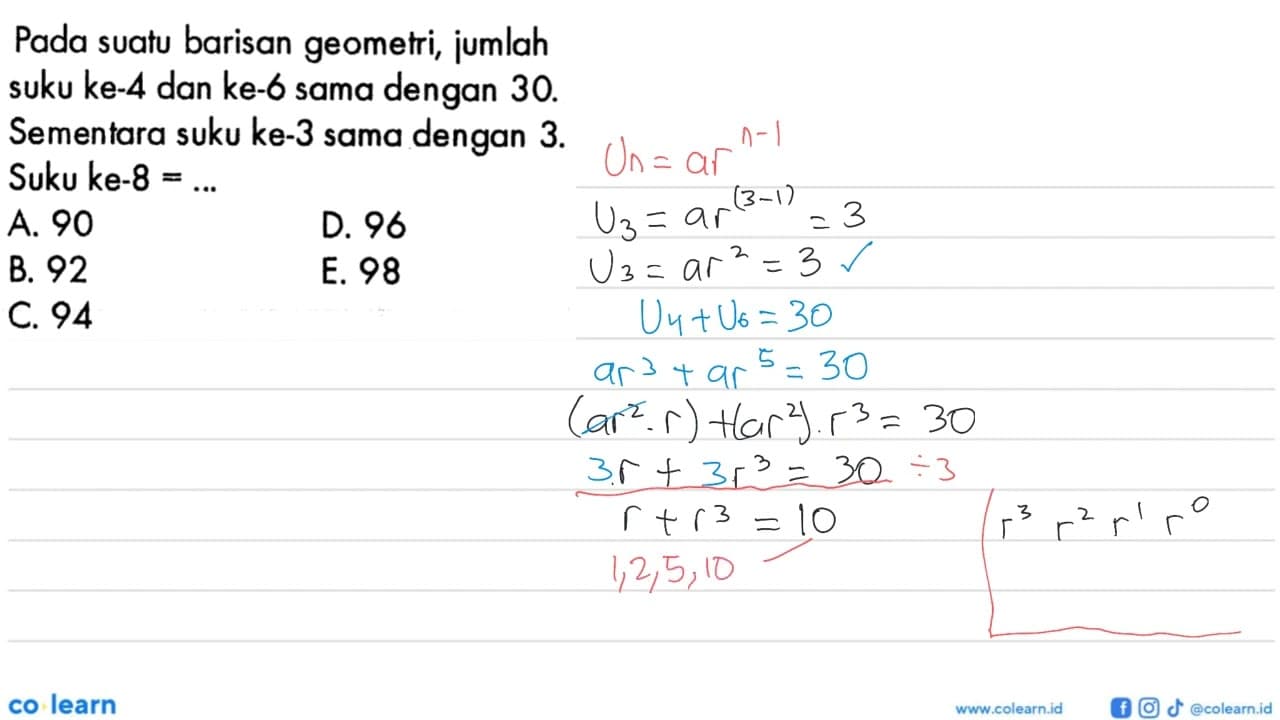 Pada suatu barisan geometri, jumlah
suku ke-4 dan ke-6 sama dengan 30.
Sementara suku ke-3 sama dengan 3.
Suku ke-8 = ...
A. 90 D. 96
B. 92 E. 98
C. 94
Un = ar^(n-1)
U₃ = ar^(3-1) = 3
U₃ = ar² = 3 ✓
U₄ + U₆ = 30
ar³ + ar⁵ = 30
(ar².r) + (ar²).r³ = 30
3.r + 3r³ = 30 ÷3
r + r³ = 10
1, 2, 5, 10
r³ r² r¹ r⁰
co learn
www.colearn.id
@colearn.id